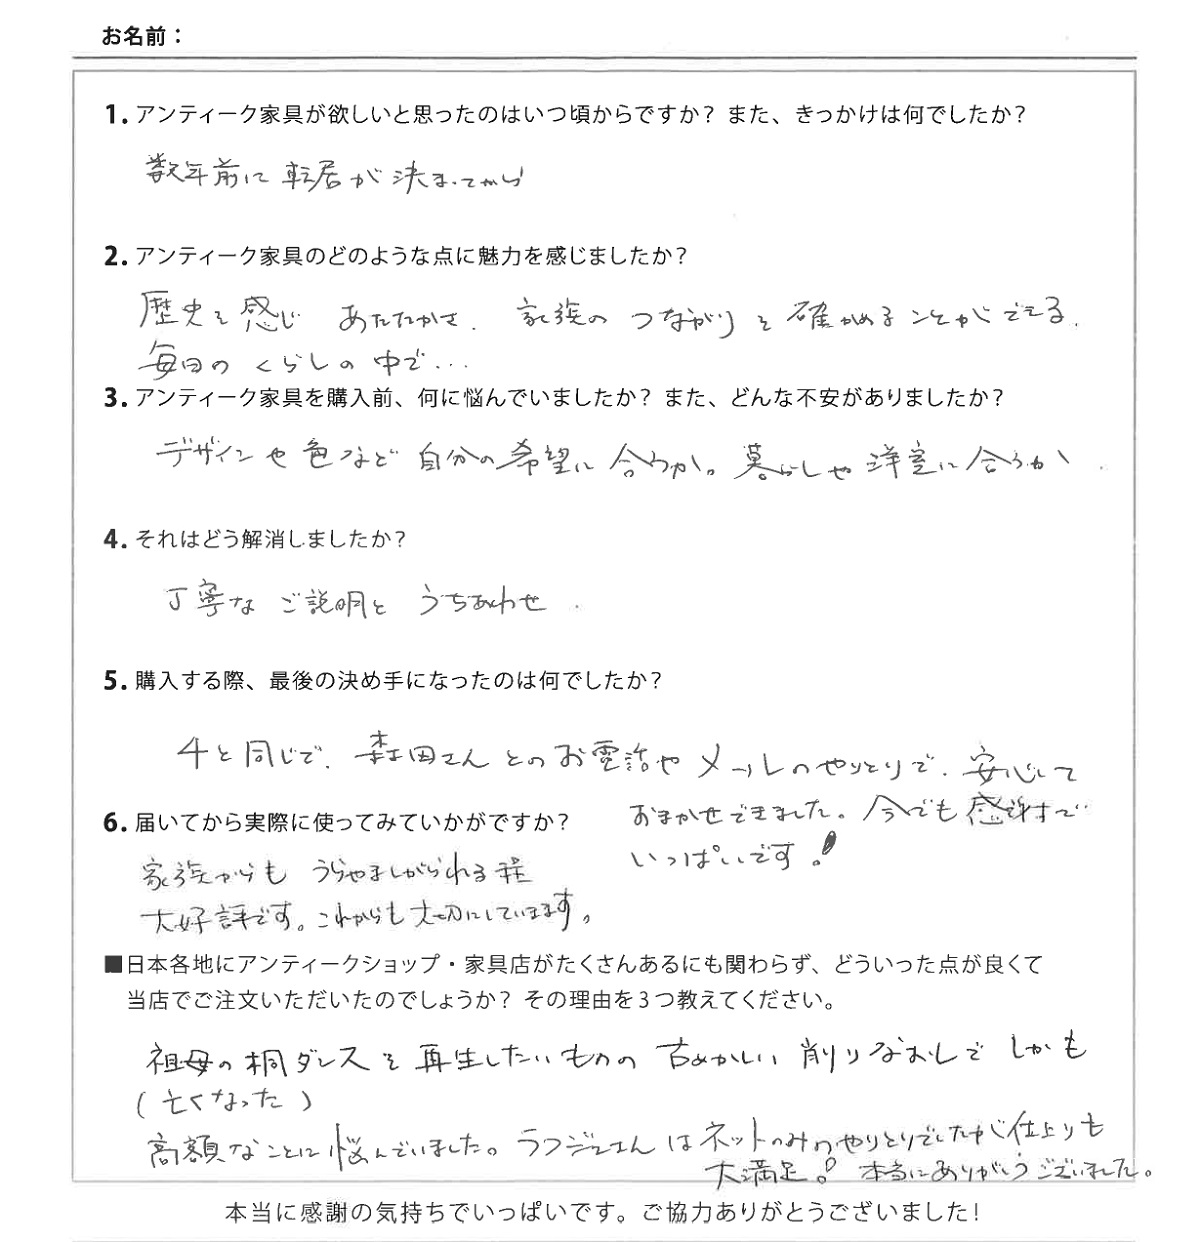 お名前：
1. アンティーク家具が欲しいと思ったのはいつ頃からですか？ また、きっかけは何でしたか？
数年前に転居が決まってから
2. アンティーク家具のどのような点に魅力を感じましたか？
歴史を感じ あたたかさ、家族のつながりを確かめることができる、
毎日のくらしの中で…
3. アンティーク家具を購入前、何に悩んでいましたか？ また、どんな不安がありましたか？
デザインや色など自分の希望に合うか。暮らしや洋室に合うか
4. それはどう解消しましたか？
丁寧なご説明とうちあわせ.
5. 購入する際、最後の決め手になったのは何でしたか？
4と同じで、森田さんとのお電話やメールのやりとりで、安心して
おまかせできました。今でも感謝で
いっぱいです！
6. 届いてから実際に使ってみていかがですか？
家族からもうらやましがられる程
大好評です。これからも大切にしていきます。
■日本各地にアンティークショップ・家具店がたくさんあるにも関わらず、どういった点が良くて
当店でご注文いただいたのでしょうか？ その理由を３つ教えてください。
祖母の桐ダンスを再生したいものの 古めかしい削りなおしで しかも
(亡くなった)
高額なことに悩んでいました。ラフジュさんはネットのみのやりとりでしたが仕上りも
大満足！ 本当にありがとうございました。
本当に感謝の気持ちでいっぱいです。ご協力ありがとうございました！